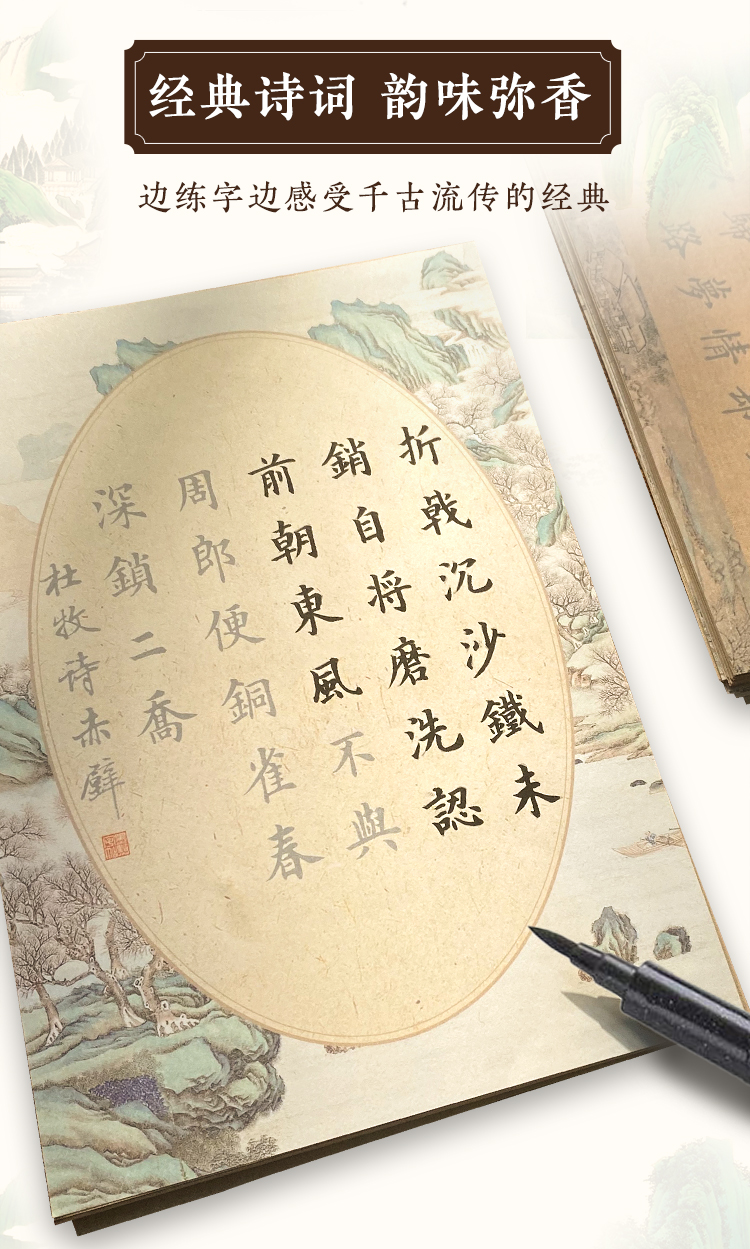 经典诗词 韵味弥香
边练字边感受千古流传的经典
折戟沉沙鐵未
銷自将磨洗認
前朝東風不與
周郎便銅雀春
深鎖二喬
杜牧诗赤壁
路夢情